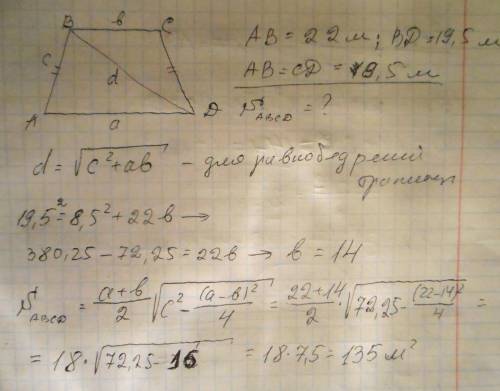 B b C
AB = 22 м; BD = 19,5 м
c d
AB = CD = 8,5 м
A a D
S ABCD = ?
d = √(c² + ab) – для равнобедреной
трапеции
19,5² = 8,5² + 22в →
380,25 – 72,25 = 22в → в = 14
S ABCD = (a + в)/2 √(c² – (a – в)²/4) = (22 + 14)/2 · √(72,25 – (22 – 14)²/4) =
= 18 · √(72,25 – 16) = 18 · 7,5 = 135 м²